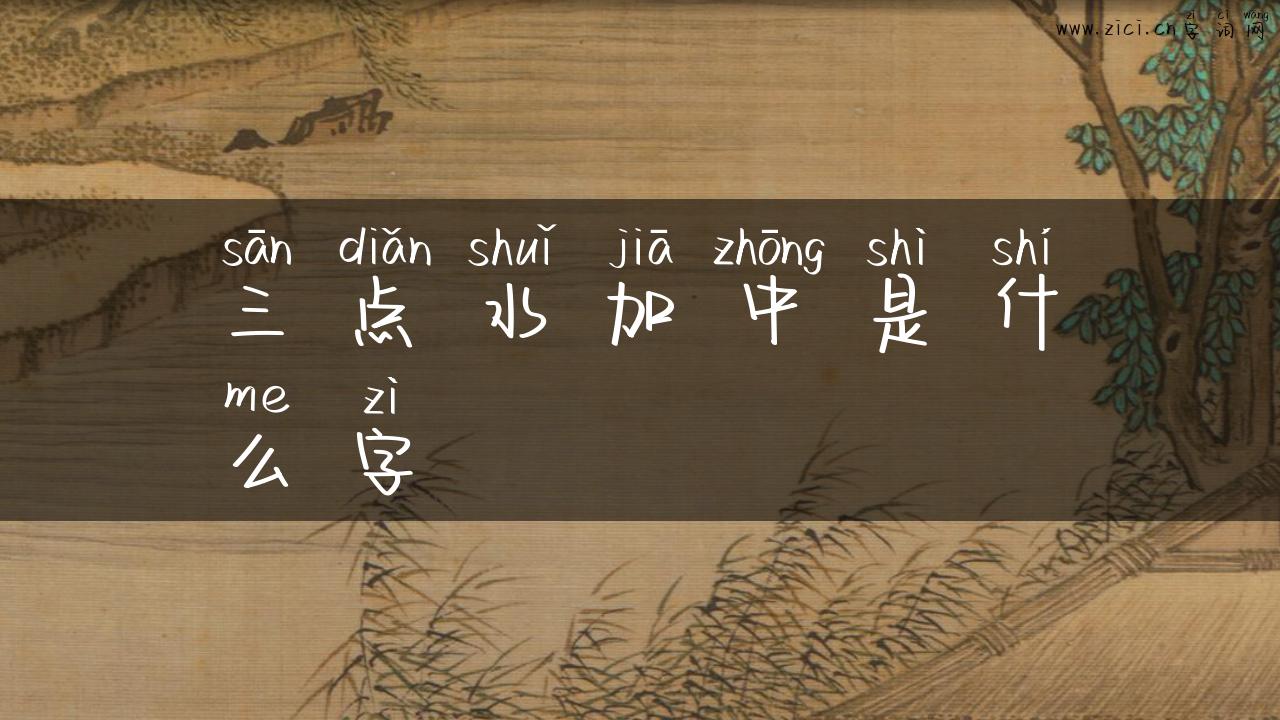 zì cí wǎng
www.zici.cn字词网
sān diǎn shuǐ jiā zhōng shì shí
三点水加中是什
me zì
么字